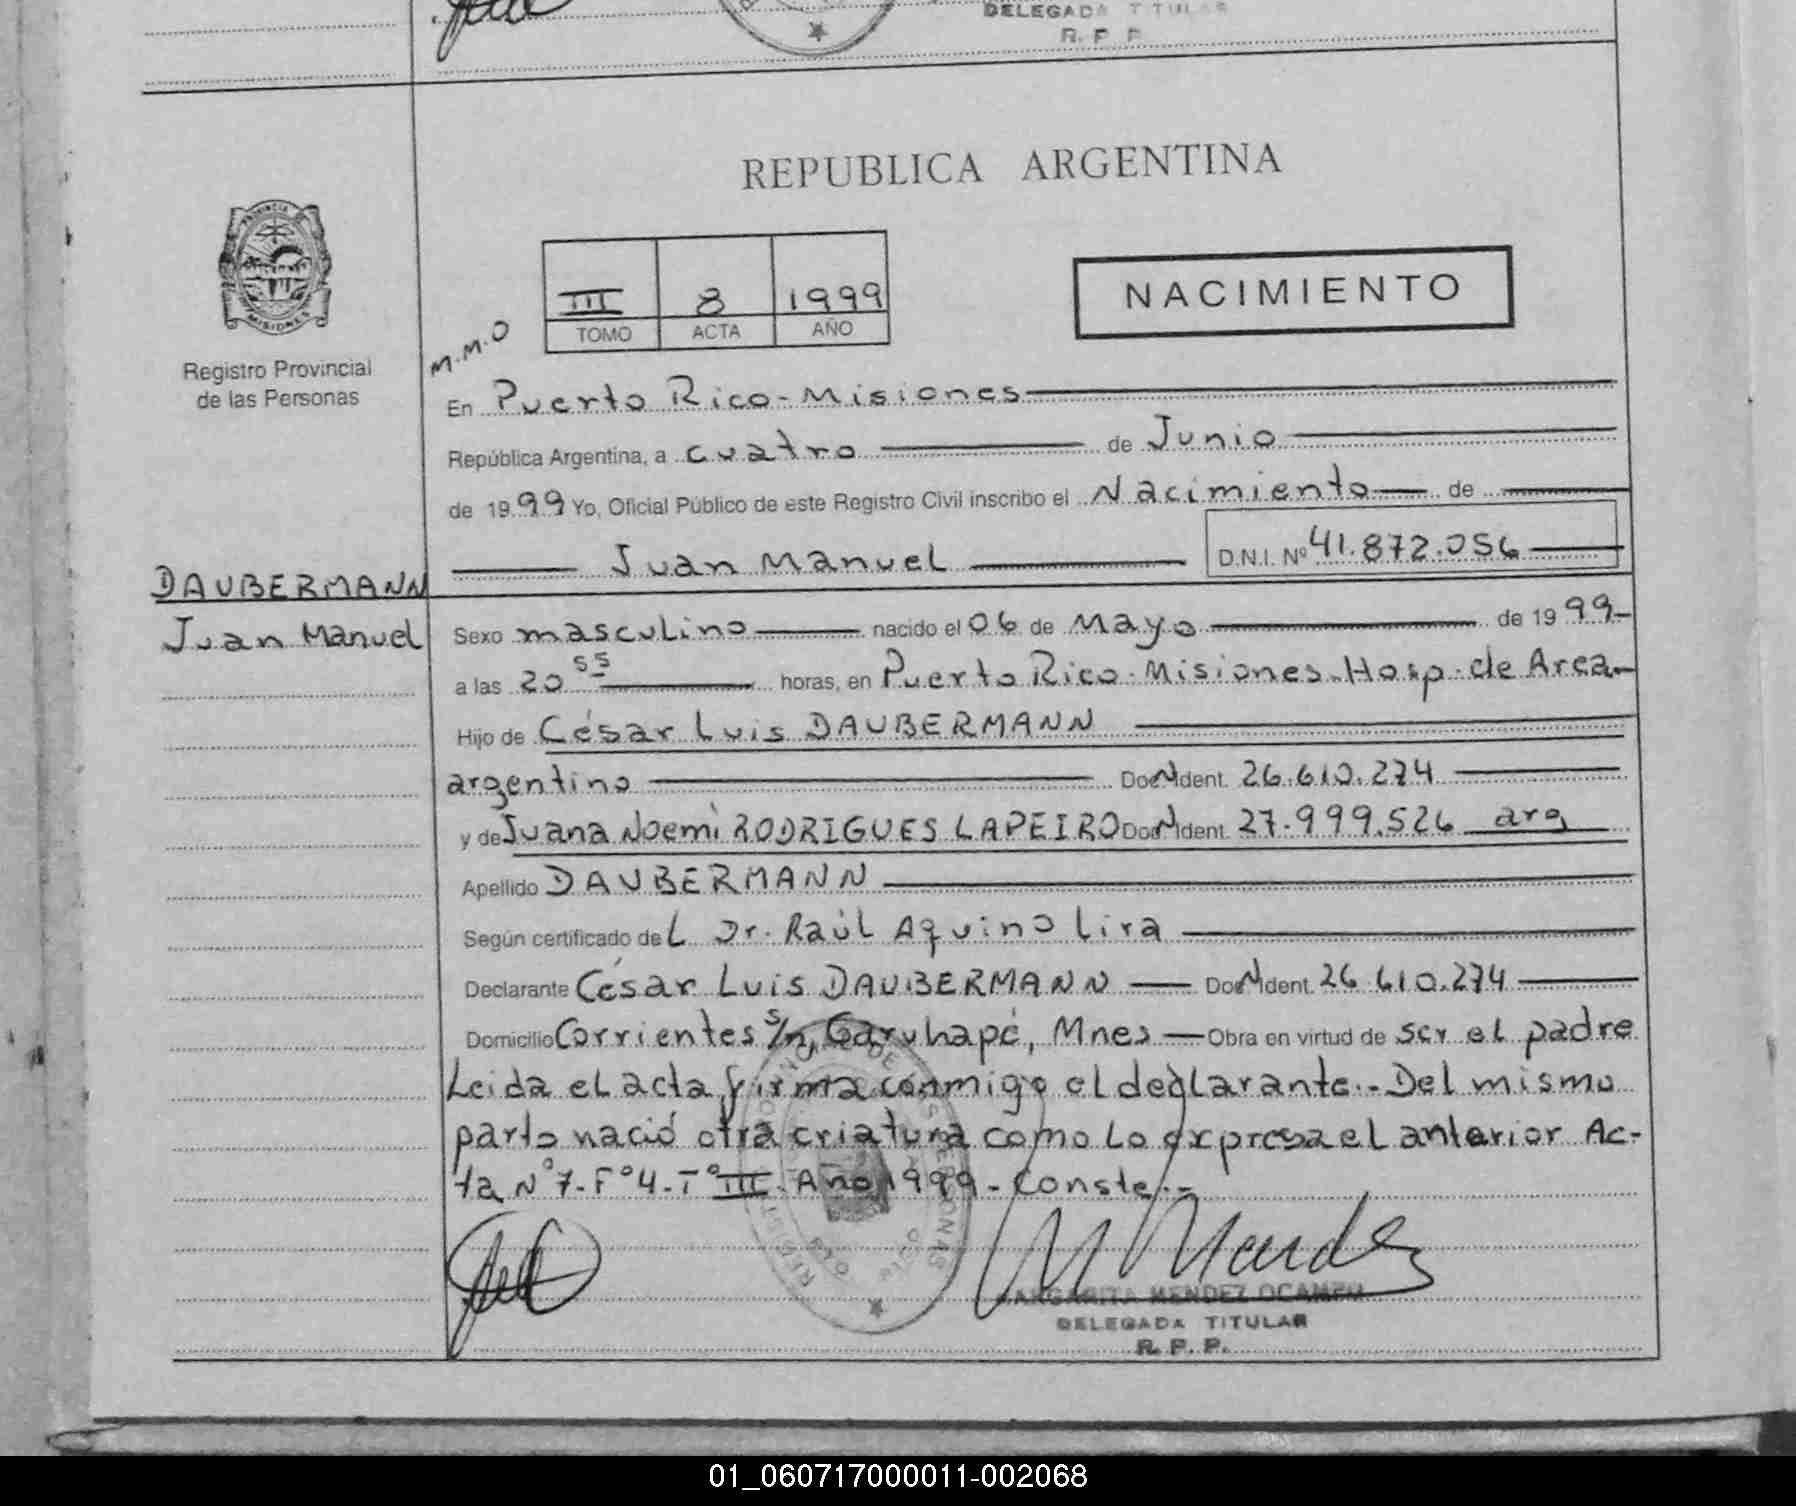 DELEGADA TITULAR
R. P. P.
REPUBLICA ARGENTINA
PROVINCIA DE
MISIONES
Registro Provincial
de las Personas
III 8 1999
TOMO ACTA AÑO
NACIMIENTO
M.M.O
En Puerto Rico - Misiones
República Argentina, a cuatro de Junio
de 1999 Yo, Oficial Público de este Registro Civil inscribo el Nacimiento de
Juan Manuel D.N.I. Nº 41.872.056
DAUBERMANN
Juan Manuel
Sexo masculino nacido el 06 de Mayo de 1999-
a las 20 55 horas, en Puerto Rico - Misiones - Hosp. de Area
Hijo de César Luis DAUBERMANN
argentino Doc N Ident. 26.610.274
y de Juana Noemi RODRIGUES LAPEIRO Doc N Ident. 27.999.526 arg
Apellido DAUBERMANN
Según certificado del Dr. Raúl Aquino Lira
Declarante César Luis DAUBERMANN Doc N Ident. 26.610.274
Domicilio Corrientes s/n, Garuhapé, Mnes - Obra en virtud de ser el padre
Leida el acta, firma conmigo el declarante.- Del mismo
parto nació otra criatura como lo expresa el anterior Ac-
ta Nº 7 - Fº 4 - Tº III - Año 1999 - Conste.-
M Mendez
MARGARITA MENDEZ OCAMPO
DELEGADA TITULAR
R. P. P.
01_060717000011-002068